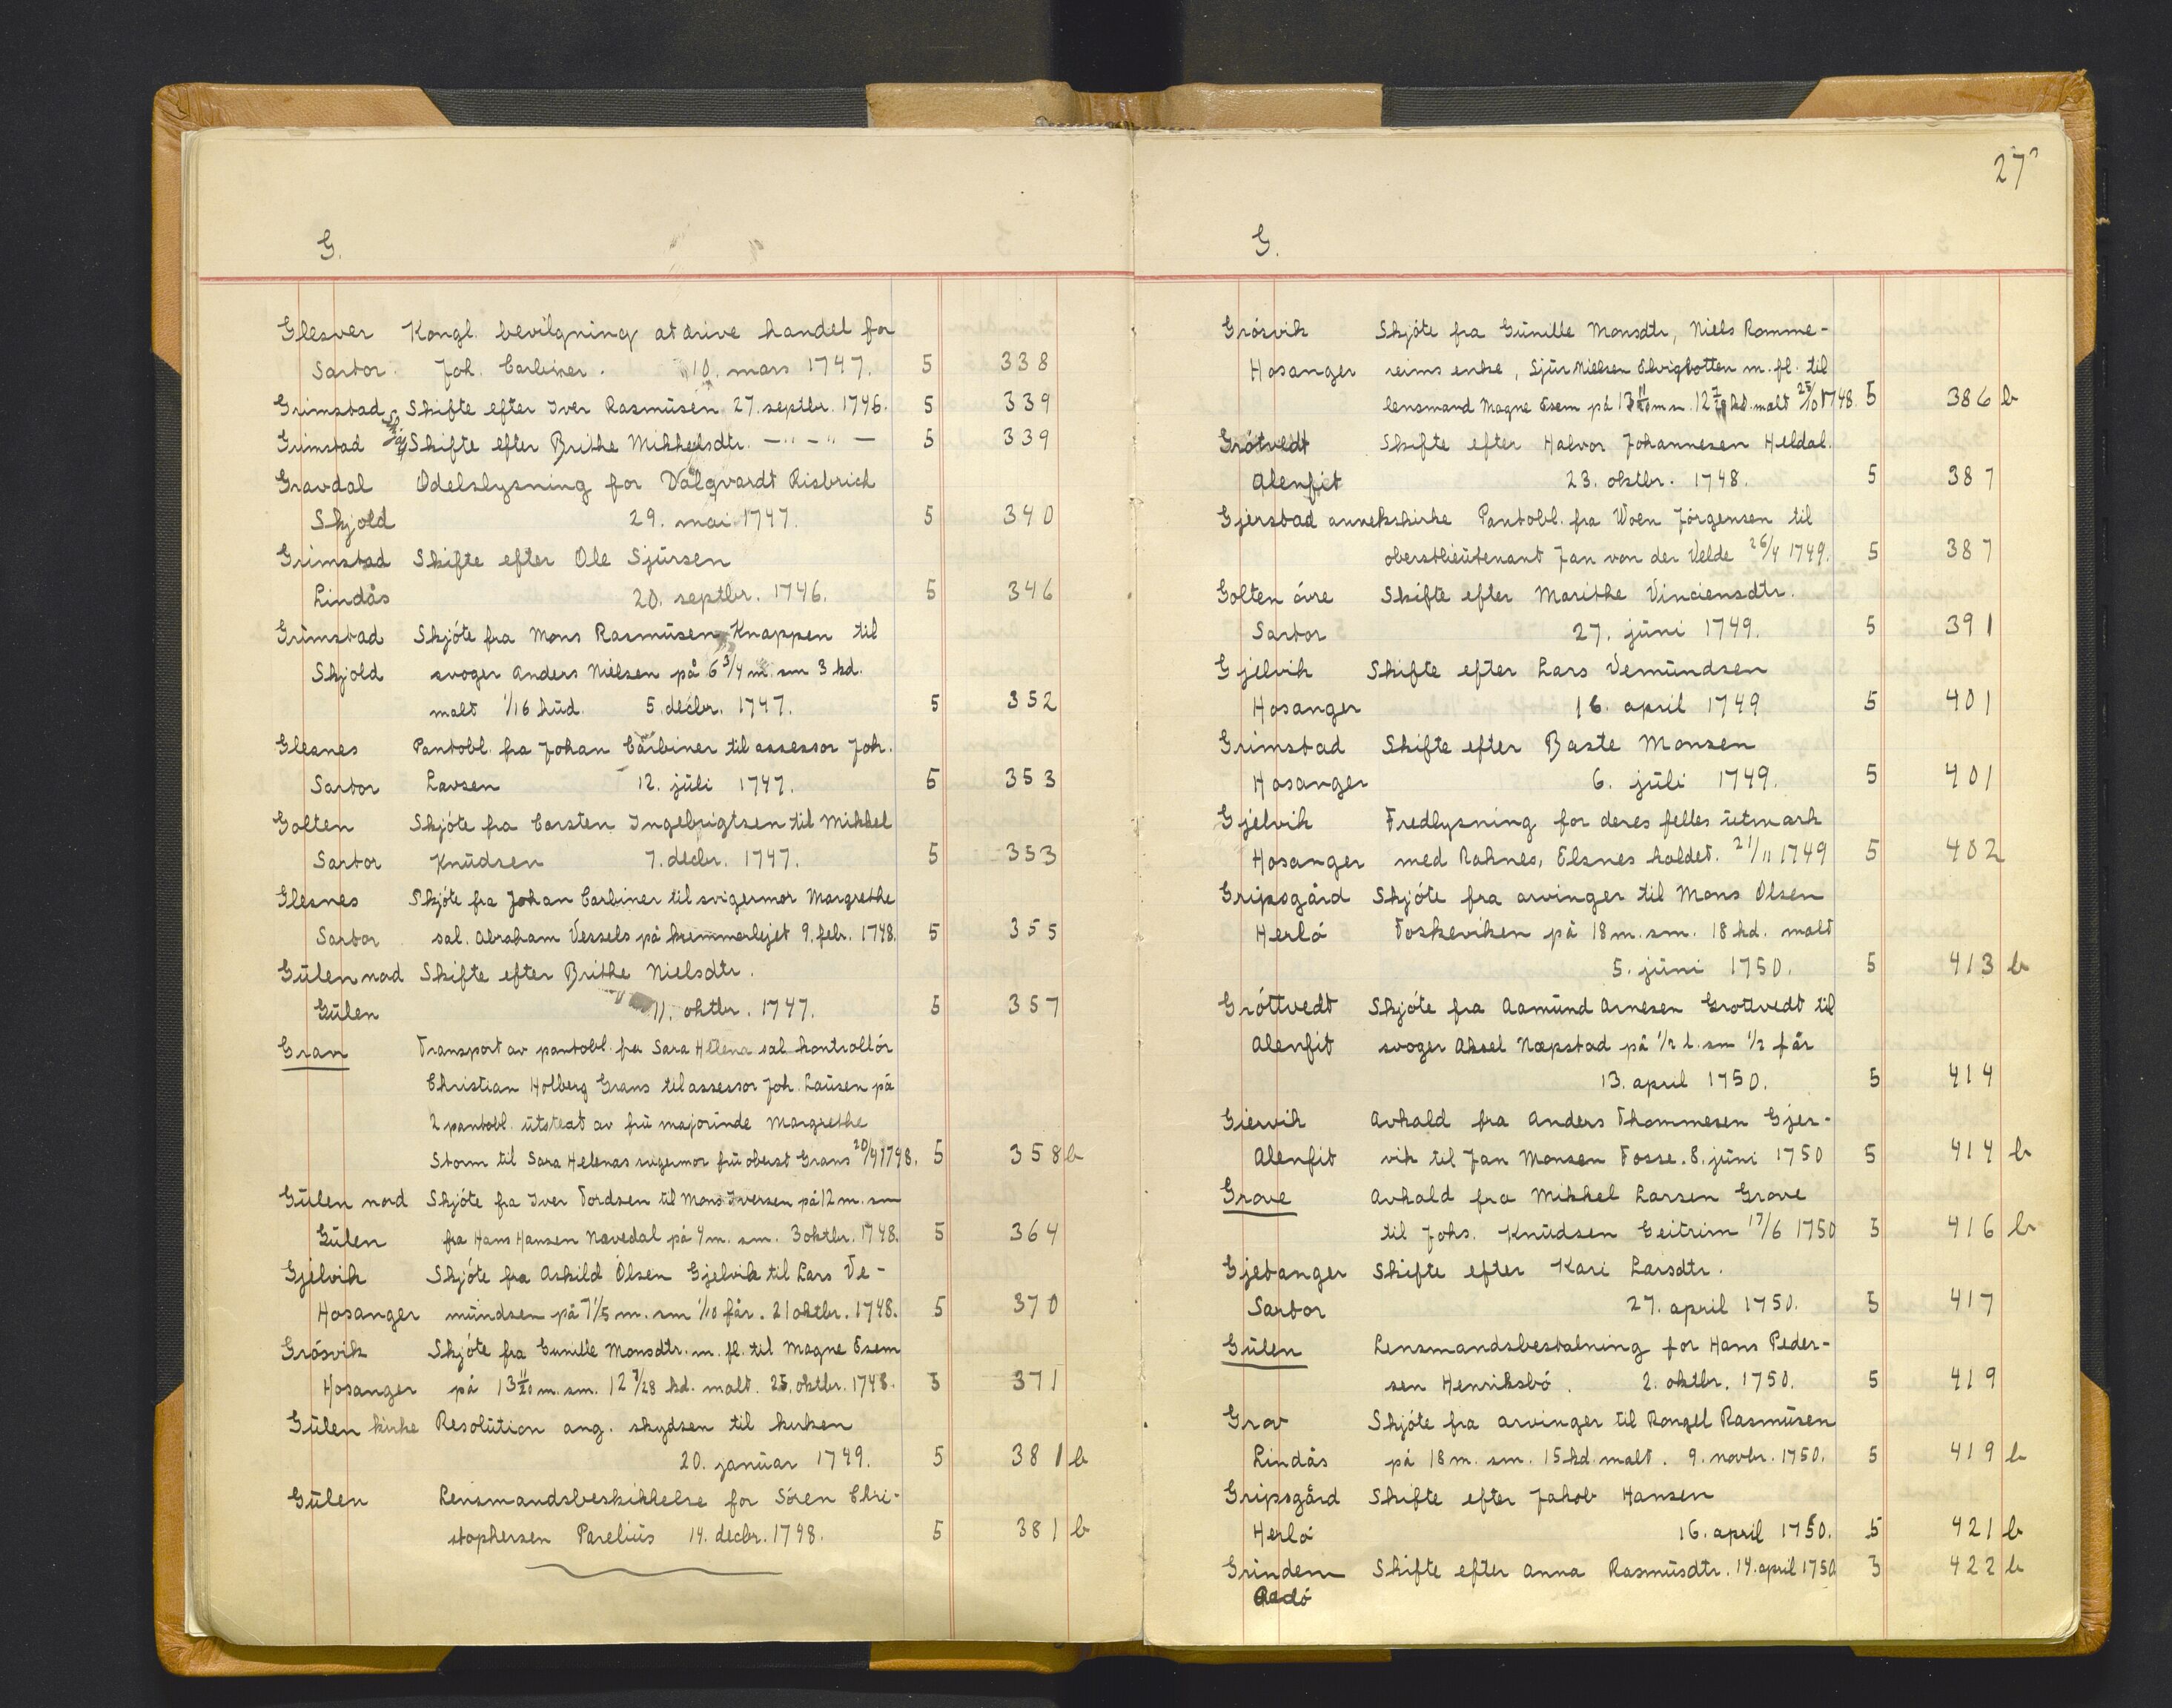 G.
Glesver Kongl. bevilgning at drive handel for
Sartor. Joh. Carbiner. 10. mars 1747. 5 338
Grimstad Skifte efter Iver Rasmüsen 27. septbr. 1746. 5 339
Grimstad Skifte efter Brithe Mikkelsdtr. —"—"— 5 339
Gravdal Odelslysning for Dalqvardt Risbrich
Skjold 29. mai 1747. 5 340
Grimstad Skifte efter Ole Sjürsen
Lindås 20. septbr. 1746. 5 346
Grimstad Skjóte fra Mons Rasmüsen Knappen til
Skjold svoger Anders Nielsen på 6 3/4 m. sm 3 kd.
malt 1/16 hüd. 5. decbr. 1747. 5 352
Glesnes Pantobl. fra Johan Carbiner til assessor Joh.
Sartor Lavsen 12. jüli 1747. 5 353
Golten Skjóte fra Carsten Ingebrigtsen til Mikkel
Sartor Knüdsen 7. decbr. 1747. 5 353
Glesnes Skjóte fra Johan Carbiner til svigermor Margrethe
Sartor sal. Abraham Vessels på kremmerlejet 9. febr. 1748. 5 355
Gülen nad Skifte efter Brithe Nielsdtr.
Gülen 11. oktbr. 1747. 5 357
Gran Transport av pantobl. fra Sara Helena sal kontrollór
Christian Holberg Grans til assessor Joh. Laüsen på
2 pantobl. ütstedt av frü majorinde Margrethe
Storm til Sara Helenas svigermor frü oberst Grans 20/4 1748. 5 358 b
Gülen nord Skjóte fra Iver Tordsen til Mons Iversen på 12 m. sm
Gülen fra Hans Hansen Navedal på 4 m. sm. 3 oktbr. 1748. 5 364
Gjelvik Skjóte fra Askild Olsen Gjelvik til Lars Ve-
Hosanger mündsen på 7 1/5 m. sm 1/10 får. 21 oktbr. 1748. 5 370
Grósvik Skjóte fra Gunille Monsdtr. m. fl. til Magne Esem
Hosanger på 13 11/20 m. sm. 12 7/28 kd. malt. 25. oktbr. 1748. 5 371
Gülen kirke Resolütion ang. skydsen til kirken
20. janüar 1749. 5 381 b
Gülen Lensmandsbeskikkelse for Sóren Chri-
stophersen Pareliüs 14. decbr. 1748. 5 381 b
27
G.
Grósvik Skjóte fra Günille Monsdtr, Niels Romme-
Hosanger reims enke, Sjür Nielsen Elvigbotten m. fl. til
lensmand Magne Esem på 13 11/20 m sm. 12 7/28 kd. malt 25/10 1748. 5 386 b
Grótvedt Skifte efter Halvor Johannesen Heldal.
Alenfit 23. oktbr. 1748. 5 387
Gjerstad annekskirke Pantobl. fra Woen Jórgensen til
oberstlieütenant Jan von der Velde 26/4 1749. 5 387
Golten óvre Skifte efter Marithe Vinciensdtr.
Sartor 27. jüni 1749. 5 391
Gjelvik Skifte efter Lars Vemündsen
Hosanger 16. april 1749 5 401
Grimstad Skifte efter Baste Monsen
Hosanger 6. jüli 1749. 5 401
Gjelvik Fredlysning for deres felles ütmark
Hosanger med Rahnes, Elsnes holdet. 21/11 1749 5 402
Gripsgård Skjóte fra arvinger til Mons Olsen
Herló Toskeviken på 18 m. sm. 18 kd. malt
5. jüni 1750. 5 413 b
Gróttvedt Skjóte fra Aamünd Arnesen Grottvedt til
Alenfit svoger Aksel Næpstad på 1/2 l. sm 1/2 får
13. april 1750. 5 414
Giervik Avkald fra Anders Thommesen Gjer-
Alenfit vik til Jan Monsen Fosse. 8. jüni 1750 5 414 b
Grove Avkald fra Mikkel Larsen Grove
til Johs. Knüdsen Geitrim 17/6 1750 5 416 b
Gjetanger Skifte efter Kari Larsdtr.
Sartor 27. april 1750. 5 417
Gülen Lensmandsbestalning for Hans Peder-
sen Henriksbó. 2. oktbr. 1750. 5 419
Grov Skjóte fra arvinger til Rangel Rasmüsen
Lindås på 18 m. sm. 15 kd. malt. 9. novbr. 1750. 5 419 b
Gripsgård Skifte efter Jakob Hansen
Herló 16. april 1750. 5 421 b
Grindem Skifte efter Anna Rasmüsdtr. 14. april 1750 5 422 b
Radó